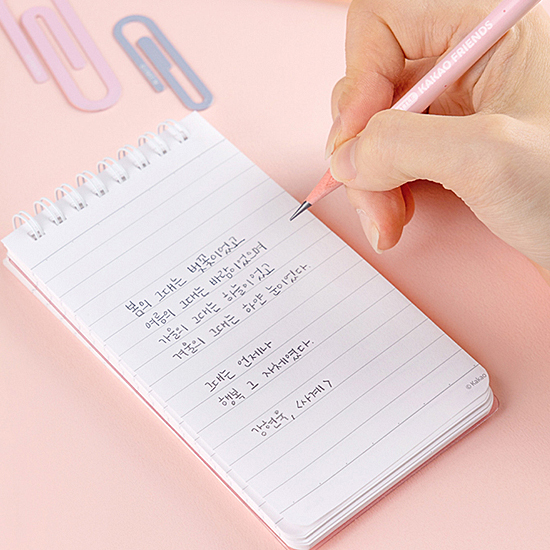 KAKAO FRIENDS
봄의 그대는 벚꽃이었고
여름의 그대는 바람이었으며
가을의 그대는 하늘이었고
겨울의 그대는 하얀 눈이었다.
그대는 언제나
행복 그 자체였다.
강현욱, <사계>
© Kakao